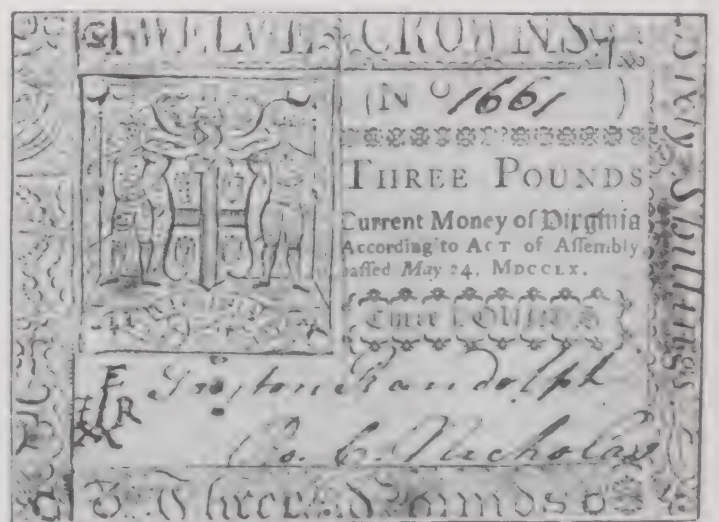 TWELVE CROWNS
(No 1661)
THREE POUNDS
Current Money of Virginia
According to ACT of Aſſembly,
paſſed May 24, MDCCLX.
Three POUNDS
Peyton Randolph
Ro. C. Nicholas
Three Pounds
Sixty Shillings